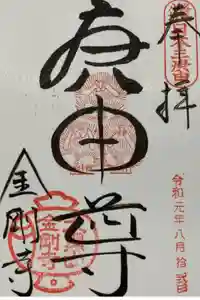 奉拝
日本三庚申
庚申尊
令和元年八月拾
金剛寺
金剛寺